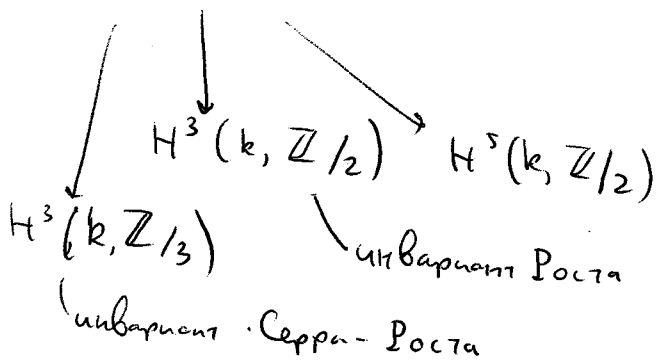 H³(k, ℤ/2) H⁵(k, ℤ/2)
H³(k, ℤ/3)
инвариант Роста
инвариант Серра-Роста